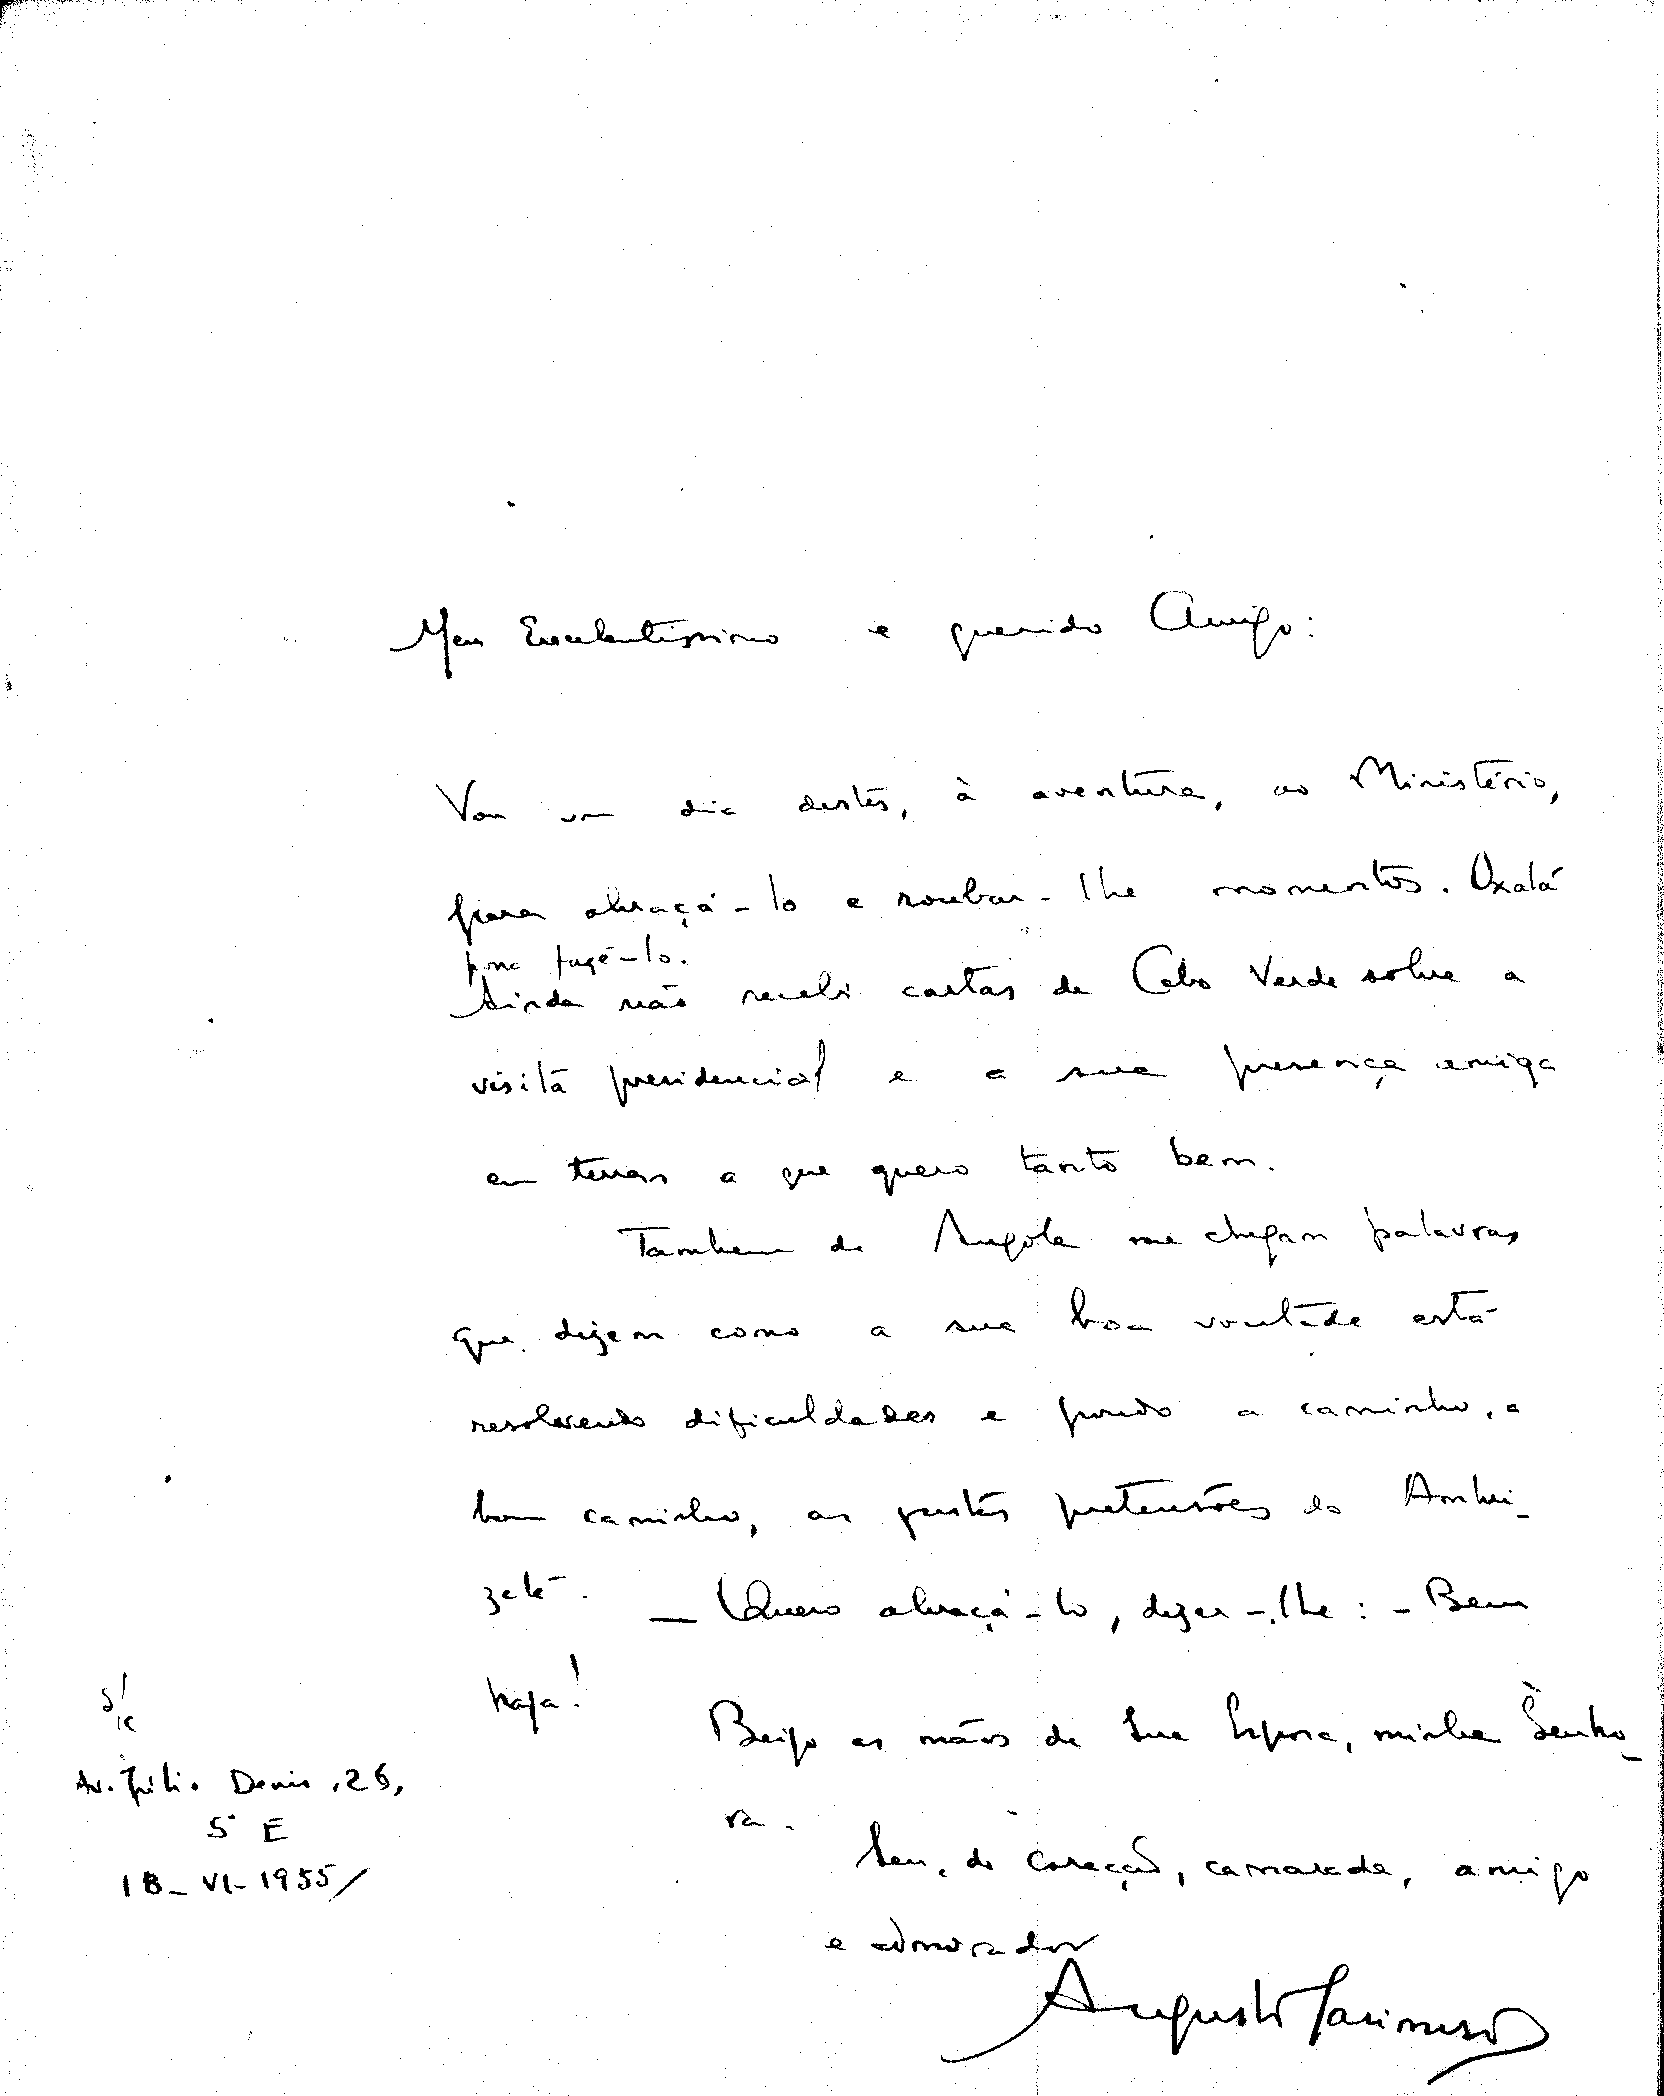 Meu Excelentíssimo e querido Amigo:
Vou um dia destes, à aventura, ao Ministério,
para abraçá-lo e roubar-lhe momentos. Oxalá
possa fazê-lo.
Ainda não recebi cartas de Cabo Verde sobre a
visita presidencial e a sua presença amiga
em terras a que quero tanto bem.
Tambem de Angola me chegam palavras
que dizem como a sua boa vontade está
resolvendo dificuldades e pondo a caminho, a
bom caminho, as justas pretensões do Ambri-
zete. — Quero abraçá-lo, dizer-lhe: - Bem
haja!
Beijo as mãos de Sua Esposa, minha Senho-
ra.
Seu, do coração, camarada, amigo
e admirador
Augusto Casimiro
S/c
Av. Júlio Denis, 26,
5º E
18-VI-1955/